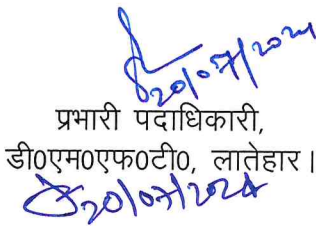 20/07/2024
प्रभारी पदाधिकारी,
डी0एम0एफ0टी0, लातेहार।
20/07/2024